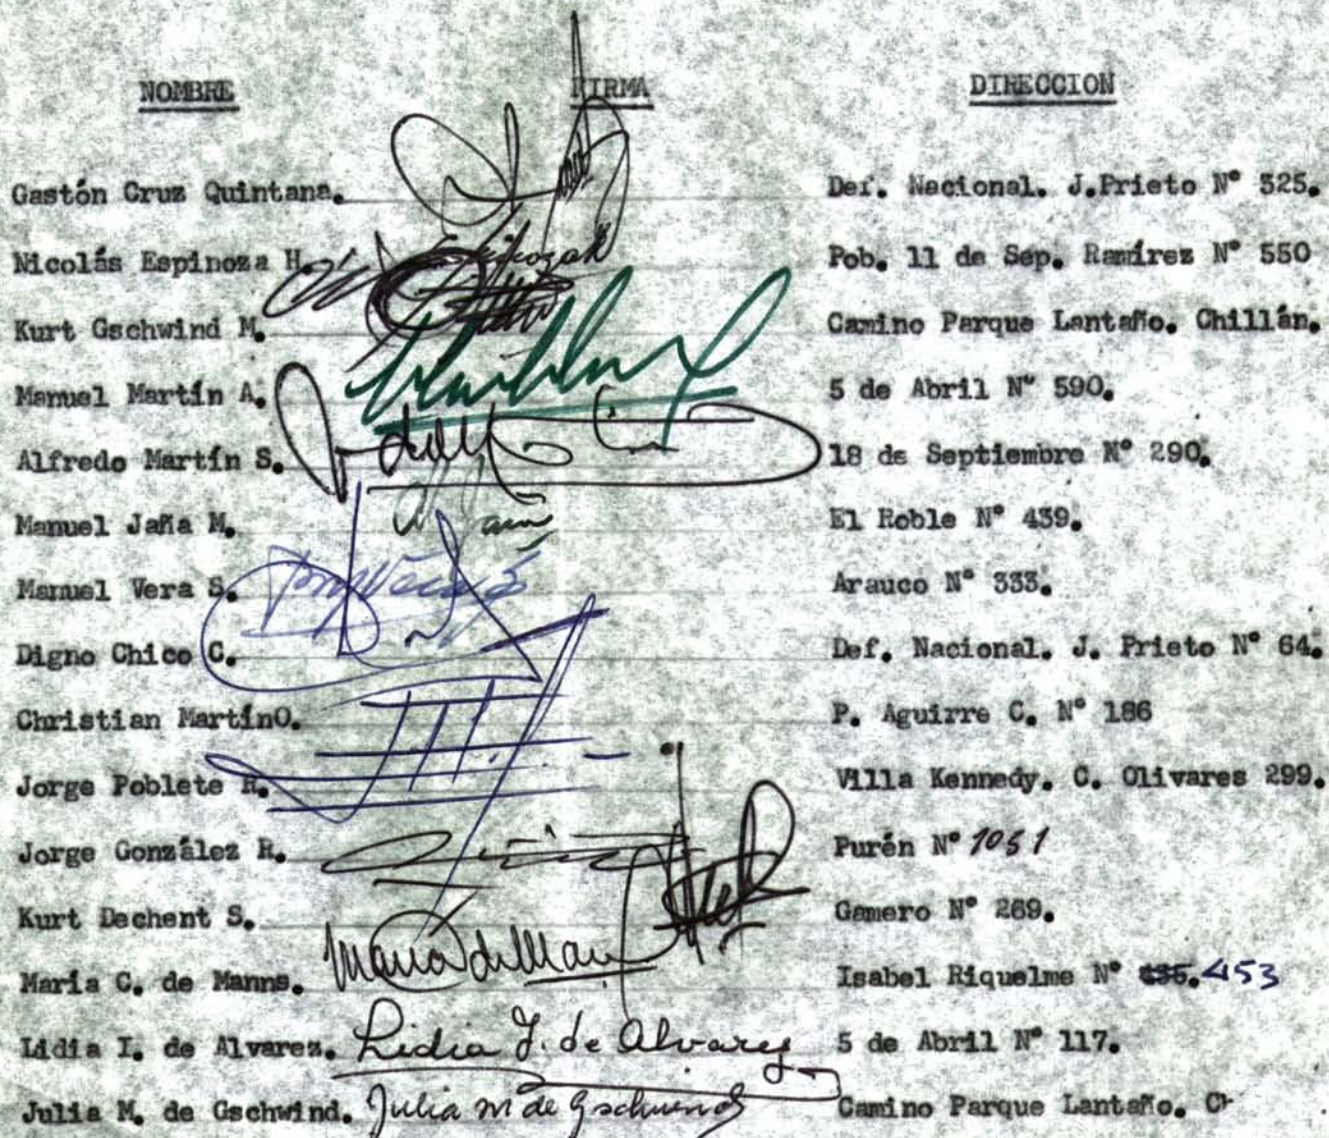 NOMBRE FIRMA DIRECCION
Gastón Cruz Quintana. Def. Nacional. J.Prieto N° 325.
Nicolás Espinoza H. Pob. 11 de Sep. Ramírez N° 550
Kurt Gschwind M. Camino Parque Lantaño. Chillán.
Manuel Martín A. 5 de Abril N° 590.
Alfredo Martín S. 18 de Septiembre N° 290.
Manuel Jaña M. El Roble N° 439.
Manuel Vera S. Arauco N° 333.
Digno Chico C. Def. Nacional. J. Prieto N° 64.
Christian MartínO. P. Aguirre C. N° 186
Jorge Poblete H. Villa Kennedy. C. Olivares 299.
Jorge González R. Purén N° 1051
Kurt Dechent S. Gamero N° 269.
María C. de Manns. Isabel Riquelme N° 453
Lidia I. de Alvarez. Lidia I. de Alvarez 5 de Abril N° 117.
Julia M. de Gschwind. Julia M de Gschwind Camino Parque Lantaño. Ch